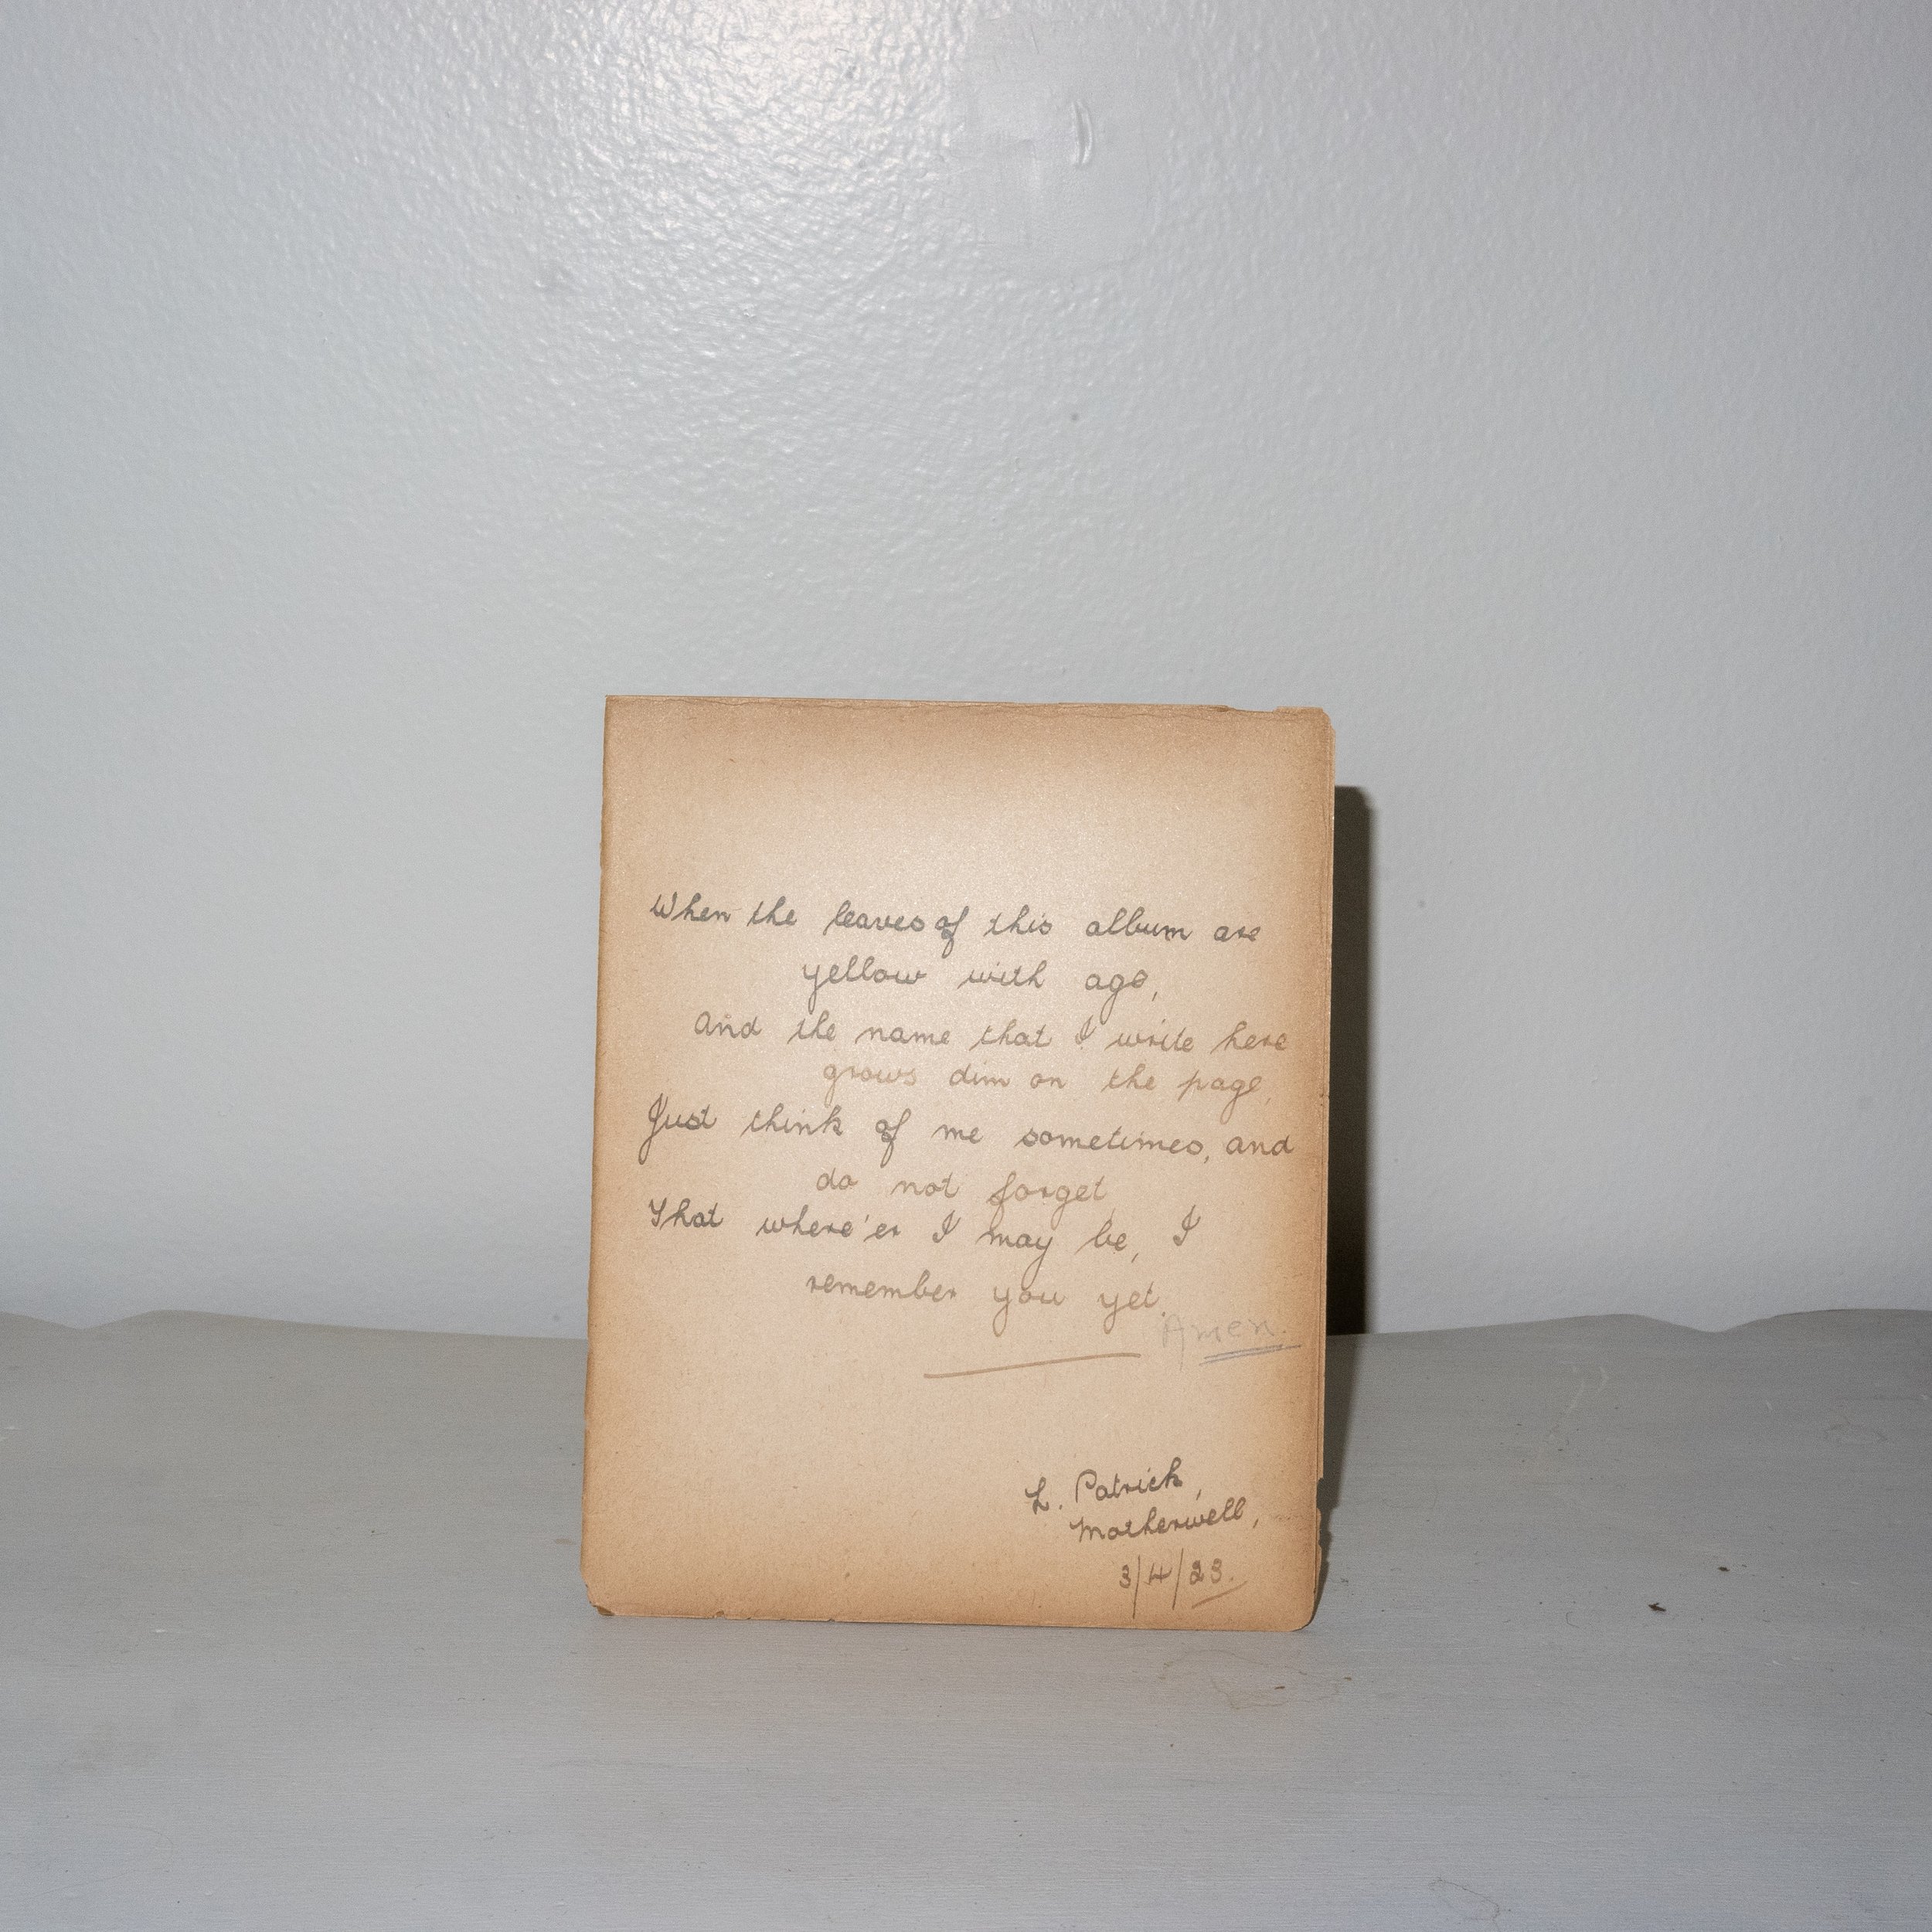 When the leaves of this album are
yellow with age,
And the name that I write here
grows dim on the page,
Just think of me sometimes, and
do not forget,
That where'er I may be, I
remember you yet.
Amen.
L. Patrick,
Motherwell,
3/4/23.